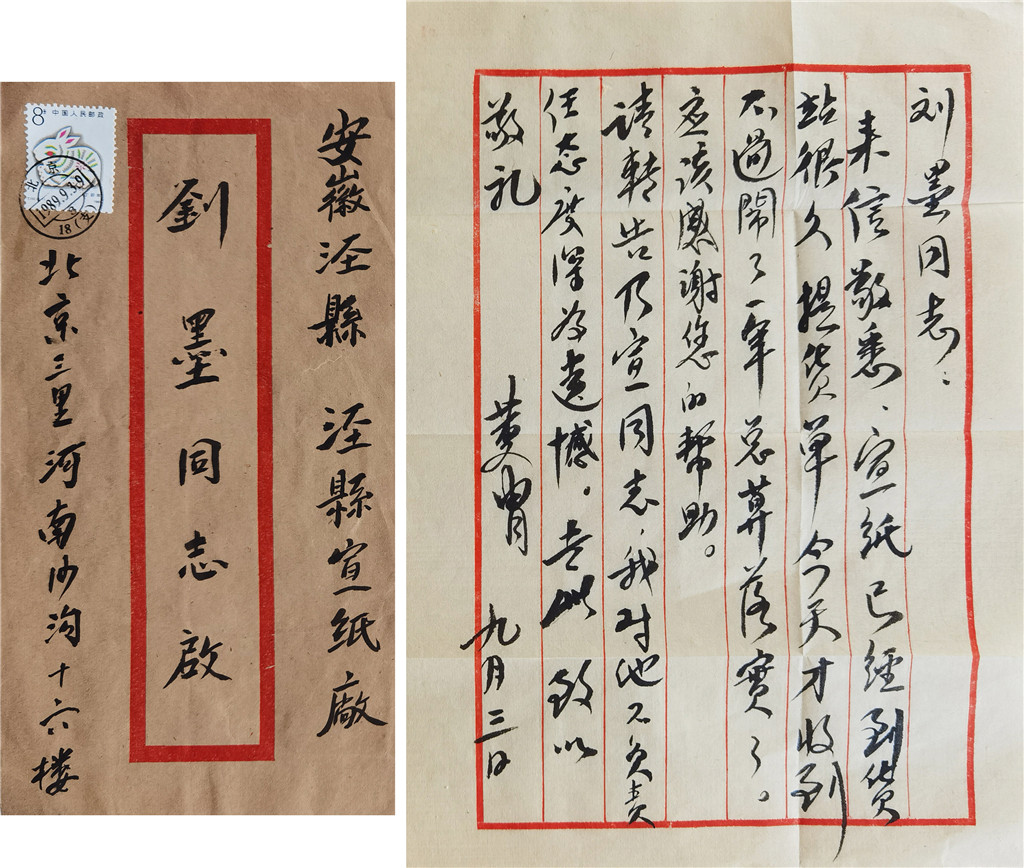 8分 中国人民邮政
北京
1989.9.3.9
18(支)
安徽涇縣 涇縣宣紙廠
劉墨同志啟
北京三里河南沙沟十六楼
刘墨同志：
来信敬悉、宣紙已經到货
站很久提货单今天才收到
不過鬧了一年总算落實了。
应该感谢您的帮助。
请轉告乃宣同志，我对他不负责
任态度深为遗憾。专此 致以
敬礼
黄胄 九月三日